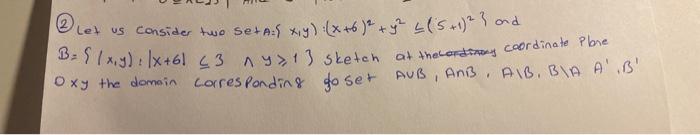 ② Let us consider two set A:{ x,y) :(x+6)² + y² ≤ (5+1)² } and
B = { (x,y) : |x+6| ≤ 3 ∧ y ≥ 1 } sketch at the coordinate plane
Oxy the domain corresponding go set AUB, A∩B, A\B, B\A A', B'